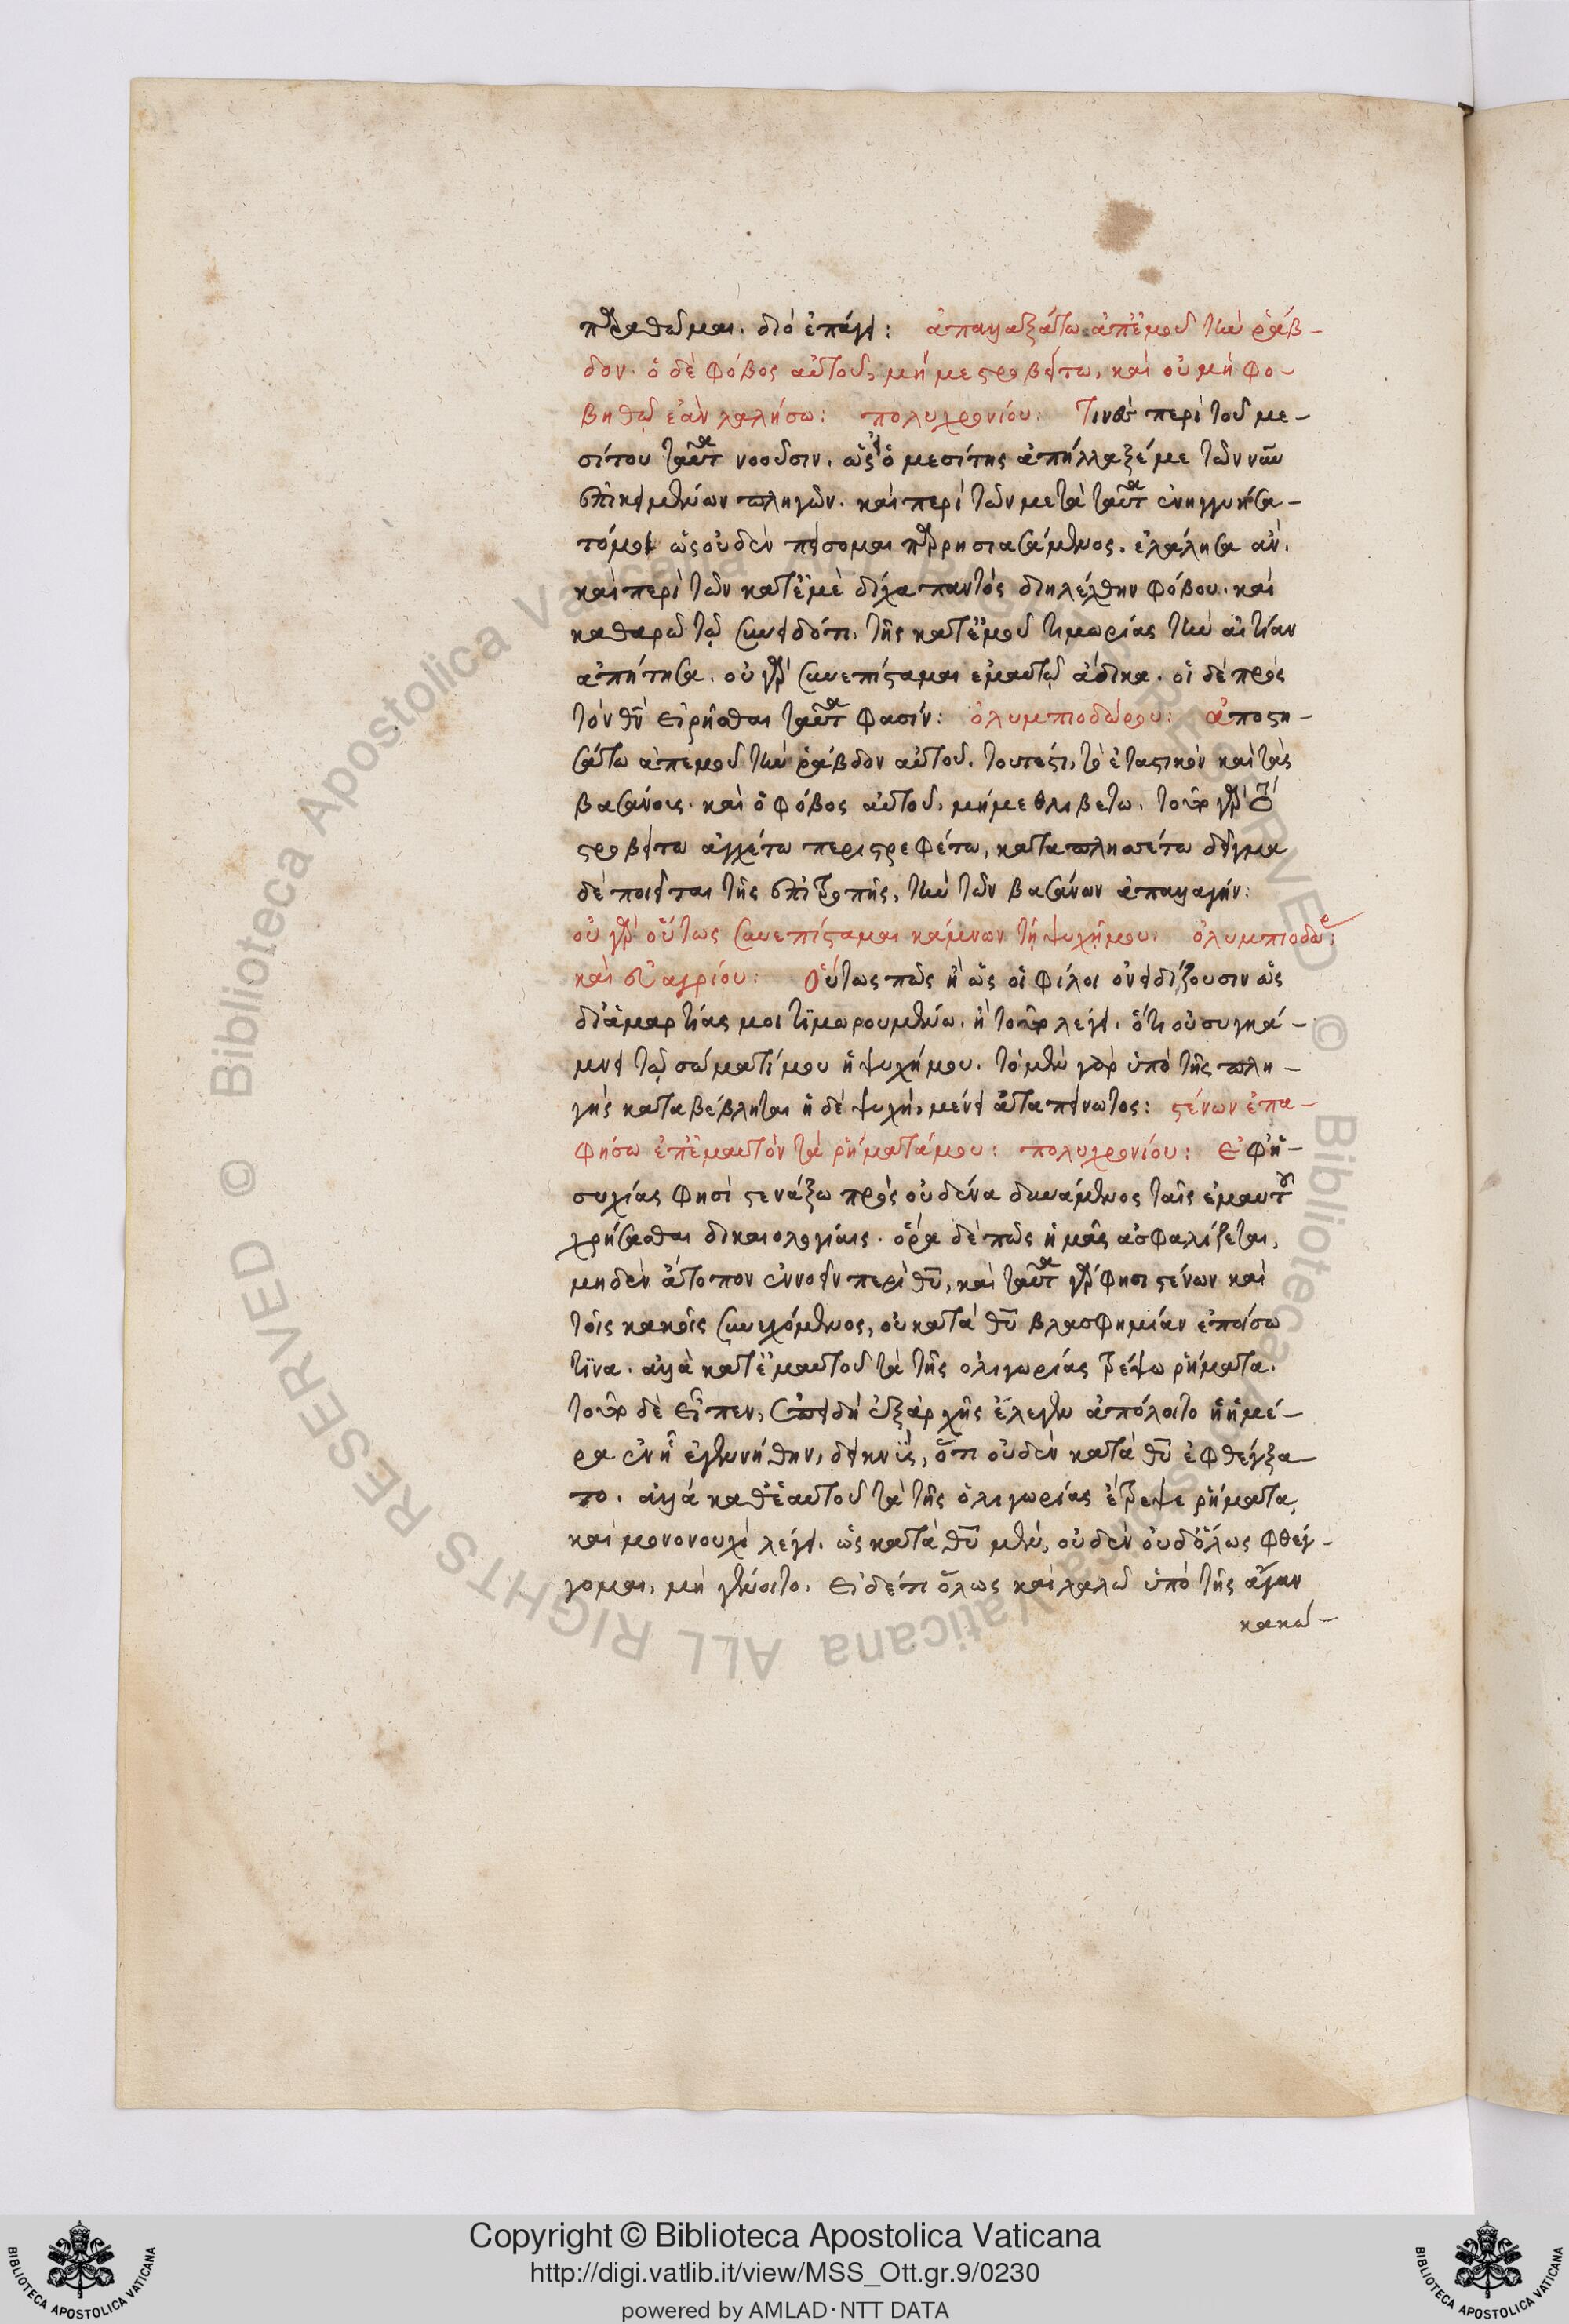 παραθῶμαι. διὸ ἐπάγει: ἀπαλλαξάτω ἀπ' ἐμοῦ τὴν ῥάβ-
δον. ὁ δὲ φόβος αὐτοῦ, μή με στροβείτω, καὶ οὐ μὴ φο-
βηθῶ ἐὰν λαλήσω: πολυχρονίου: Τινὲς περὶ τοῦ με-
σίτου ταῦτα νοοῦσιν. ὡς εἰ ὁ μεσίτης ἀπήλλαξέ με τῶν νῦν
ἐπικειμένων πληγῶν. καὶ περὶ τῶν μετὰ ταῦτα ἐνηγγυήσα-
τό μοι ὡς οὐδὲν πείσομαι παρρησιασάμενος. ἐλάλησα ἂν,
καὶ περὶ τῶν κατ' ἐμὲ δίχα παντὸς διηλέχθην φόβου. καὶ
καθαρῷ τῷ συνειδότι, τῆς κατ' ἐμοῦ τιμωρίας τὴν αἰτίαν
ἀπῄτησα. οὐ γὰρ συνεπίσταμαι ἐμαυτῷ ἄδικα. οἱ δὲ πρὸς
τὸν θν εἰρῆσθαι ταῦτα φασίν: ὀλυμπιοδώρου: ἀποστη-
σάτω ἀπ' ἐμοῦ τὴν ῥάβδον αὐτοῦ. τουτέστι, τὸ ἐταστικὸν καὶ τὰς
βασάνους. καὶ ὁ φόβος αὐτοῦ, μή με θλιβέτω. τοῦτο γὰρ
στροβείτω ἀγχέτω περιστρεφέτω, καταπλησσέτω δεῖγμα
δὲ ποιεῖται τῆς ἐπιτροπῆς, τὴν τῶν βασάνων ἀπαλλαγήν:
οὐ γὰρ οὕτως συνεπίσταμαι κάμνων τῇ ψυχῇ μου: ὀλυμπιοδώρ:
καὶ εὐαγρίου: Οὕτως πῶς ἢ ὡς οἱ φίλοι ὀνειδίζουσιν ὡς
δι' ἁμαρτίας μοι τιμωρουμένω. ἢ τοῦτο λέγει. ὅτι οὐ συγκά-
μνει τῷ σώματί μου ἡ ψυχή μου. τὸ μὲν γὰρ ὑπὸ τῆς πλη-
γῆς καταβέβληται ἡ δὲ ψυχὴ, μένει ἀταπείνωτος: στένων ἐπα-
φήσω ἐπ' ἐμαυτὸν τὰ ῥήματά μου: πολυχρονίου: Ἐφ' ἡ-
συχίας φησὶ στενάξω πρὸς οὐδένα δυνάμενος ταῖς ἐμαυτοῦ
χρήσασθαι δικαιολογίαις. ὅρα δὲ πῶς ἡμᾶς ἀσφαλίζεται,
μηδὲν ἄτοπον ἐννοεῖν περὶ θυ, καὶ ταῦτα γάρ φησι στένων καὶ
τοῖς κακοῖς συνεχόμενος, οὐ κατὰ θυ βλασφημίαν ἐποίσω
τινα. ἀλλὰ κατ' ἐμαυτοῦ τὰ τῆς ὀλιγωρίας τρέψω ῥήματα.
τοῦτο δὲ εἶπεν, ἐπειδὴ ἐξ ἀρχῆς ἔλεγεν ἀπόλοιτο ἡ ἡμέ-
ρα ἐν ᾗ ἐγεννήθην, δεικνὺς, ὅτι οὐδὲν κατὰ θυ ἐφθέγξα-
το. ἀλλὰ καθ' ἑαυτοῦ τὰ τῆς ὀλιγωρίας ἔτρεψε ῥήματα,
καὶ μονονουχὶ λέγει. ὡς κατὰ θυ μὲν, οὐδὲν οὐδ' ὅλως φθέγ-
γομαι, μὴ γένοιτο. εἰ δέ τι ὅλως καὶ λαλῶ ὑπὸ τῆς ἄγαν
κακώ-
Copyright © Biblioteca Apostolica Vaticana
http://digi.vatlib.it/view/MSS_Ott.gr.9/0230
powered by AMLAD·NTT DATA
BIBLIOTECA APOSTOLICA VATICANA
BIBLIOTECA APOSTOLICA VATICANA
© Biblioteca Apostolica Vaticana ALL RIGHTS RESERVED
© Biblioteca Apostolica Vaticana ALL RIGHTS RESERVED